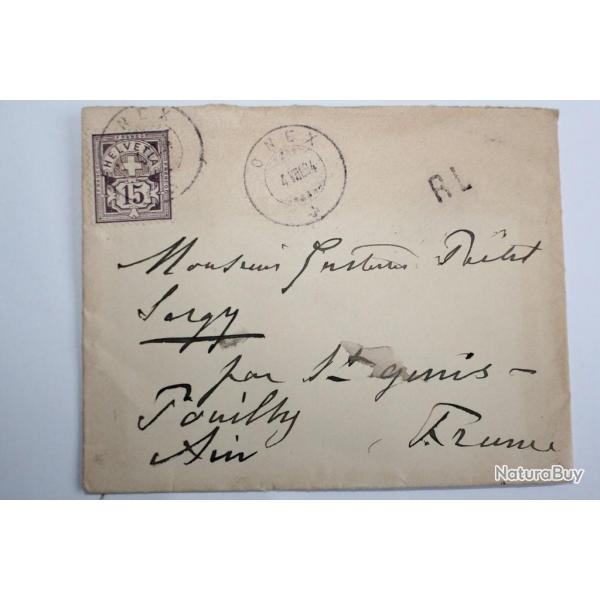 ONEX
HELVETIA
15
ONEX
4 VIII 04
RL
Monsieur
Sergy
par St genis-
Pouilly
Ain France
NaturaBuy